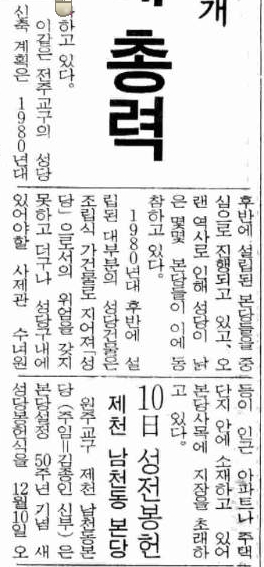 개
총력
하고 있다.
이같은 전주교구의 성당
신축 계획은 1980년대
후반에 설립된 본당들을 중
심으로 진행되고 있고, 오
랜 역사로 인해 성당이 낡
은 몇몇 본당들이 이에 동
참하고 있다.
1980년대 후반에 설
립된 대부분의 성당건물은
조립식 가건물로 지어져 「성
당」으로서의 위엄을 갖지
못하고 더구나 성당구내에
있어야할 사제관 수녀원
등이 인근 아파트나 주택
단지 안에 소재하고 있어
본당사목에 지장을 초래하
고 있다.
10日 성전봉헌
제천 남천동 본당
원주교구 제천 남천동본
당(주임=김종인 신부)은
본당설정 50주년 기념 새
성당봉헌식을 12월10일 오